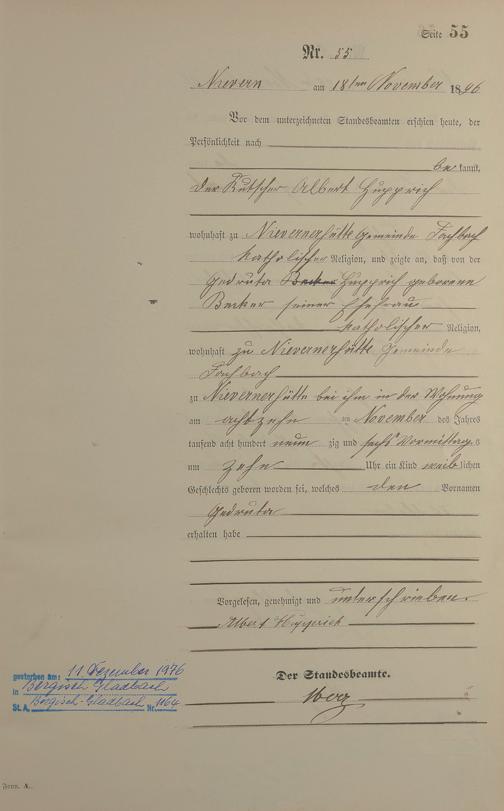 Seite 55
Nr. 55
Nievern am 18ten November 1896
Vor dem unterzeichneten Standesbeamten erschien heute, der
Persönlichkeit nach
be kannt,
der Kutscher Albert Hupprich
wohnhaft zu Nievernerhütte Gemeinde Fachbach
katholischer Religion, und zeigte an, daß von der
Gedruta Becker Hupprich geborene
Becker seiner Ehefrau
katholischer Religion,
wohnhaft zu Nievernerhütte Gemeinde
Fachbach
zu Nievernerhütte bei ihm in der Wohnung
am achtzehn ten November des Jahres
tausend acht hundert neun zig und sechs Vormittags
um zehn Uhr ein Kind weiblichen
Geschlechts geboren worden sei, welches den Vornamen
Gedruta
erhalten habe
Vorgelesen, genehmigt und unterschrieben
Albert Hupprich
Der Standesbeamte.
gestorben am: 11 Dezember 1976
in Bergisch Gladbach
St. A. Bergisch-Gladbach Nr. 1164
Form. A.